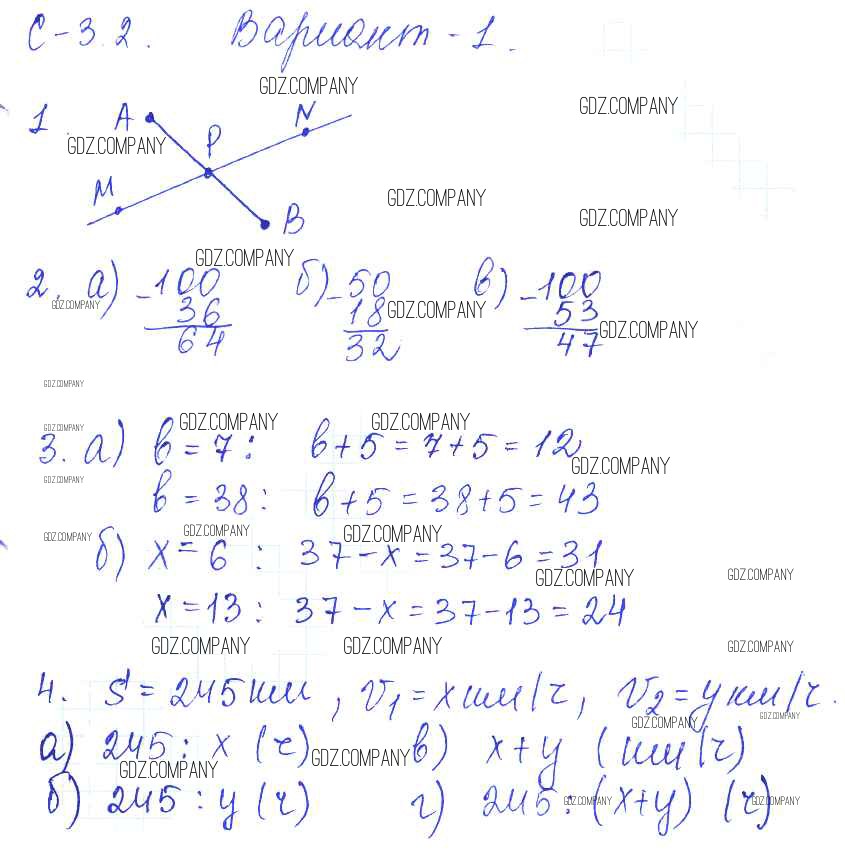 С-3.2. Вариант - 1.
GDZ.COMPANY
1. A P N GDZ.COMPANY
GDZ.COMPANY
M B GDZ.COMPANY GDZ.COMPANY
GDZ.COMPANY
2. а) -100 б) -50 в) -100
GDZ.COMPANY 36 18 GDZ.COMPANY 53 GDZ.COMPANY
64 32 47
GDZ.COMPANY
GDZ.COMPANY GDZ.COMPANY GDZ.COMPANY
3. а) b = 7 : b + 5 = 7 + 5 = 12
GDZ.COMPANY
GDZ.COMPANY
b = 38 : b + 5 = 38 + 5 = 43
GDZ.COMPANY GDZ.COMPANY GDZ.COMPANY
б) x = 6 : 37 - x = 37 - 6 = 31
GDZ.COMPANY GDZ.COMPANY
x = 13 : 37 - x = 37 - 13 = 24
GDZ.COMPANY GDZ.COMPANY GDZ.COMPANY
4. S = 245 км , V1 = x км/ч, V2 = y км/ч.
GDZ.COMPANY GDZ.COMPANY
а) 245 : x (ч) GDZ.COMPANY в) x + y (км/ч)
GDZ.COMPANY
б) 245 : y (ч) г) 245 : (x+y) (ч)
GDZ.COMPANY GDZ.COMPANY